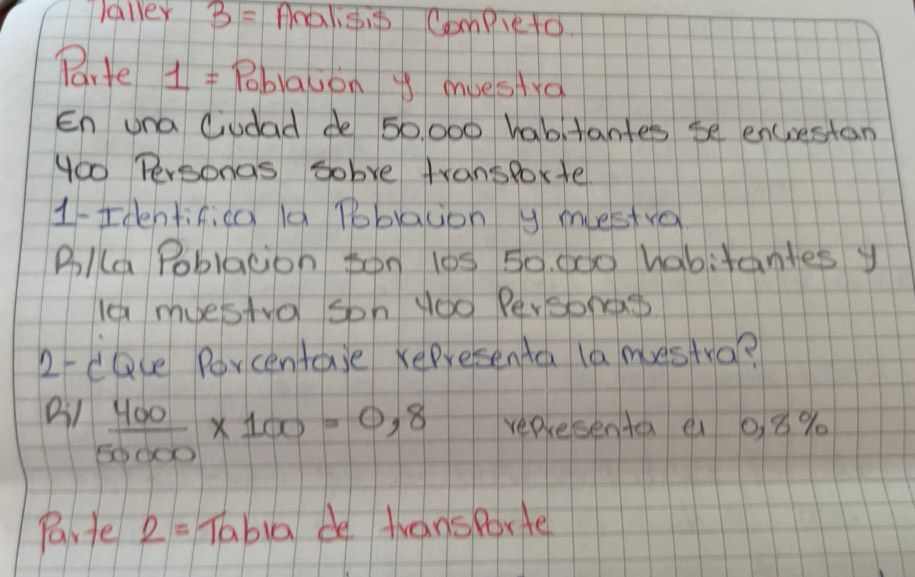 Taller 3 = Analisis Completo.
Parte 1 = Poblacion y muestra
En una Ciudad de 50.000 habitantes se encuestan
400 Personas sobre transporte.
1-Identifica la Poblacion y muestra.
R// La Poblacion son los 50.000 habitantes y
la muestra son 400 Personas
2-¿Que Porcentaje representa la muestra?
R// 400/50000 x 100 = 0,8 representa el 0,8%
Parte 2 = Tabla de transporte